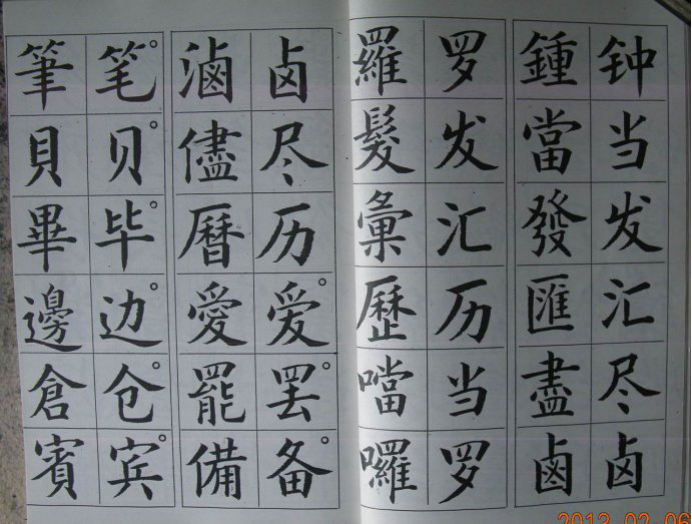 鍾钟
當当
發发
匯汇
盡尽
鹵卤
羅罗
髮发
彙汇
歷历
噹当
囉罗
滷卤
儘尽
曆历
愛爱
罷罢
備备
筆笔
貝贝
畢毕
邊边
倉仓
賓宾
2013 02 06